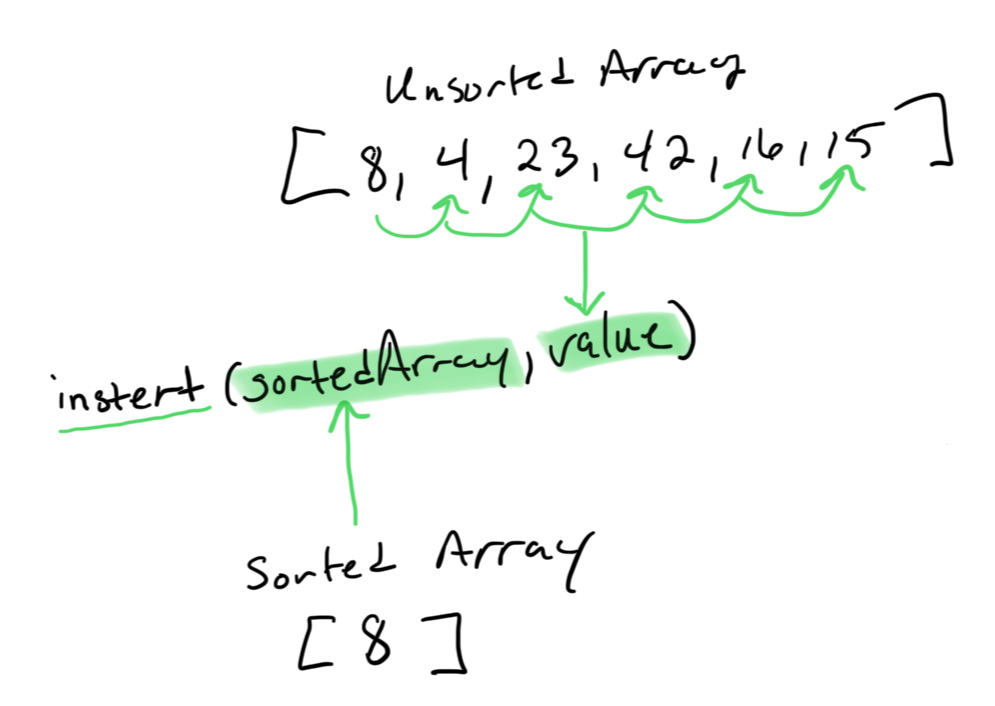 Unsorted Array
[8, 4, 23, 42, 16, 15]
instert (sortedArray, value)
Sorted Array
[8]